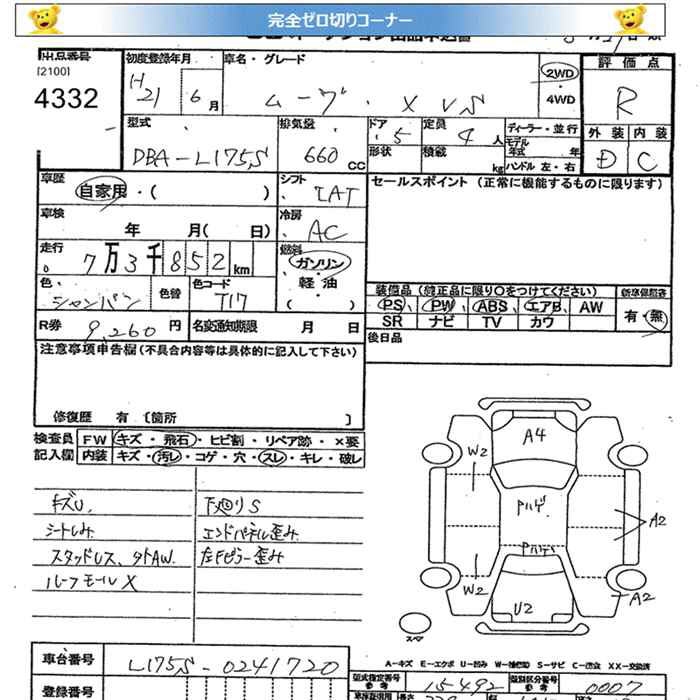 完全ゼロ切りコーナー
出品番号
[2100]
4332
初度登録年月
H21 6月
車名・グレード
ムーヴ・X VS
2WD
・
4WD
評価点
R
外装 内装
D C
型式
DBA-L175S
排気量
660 CC
ドア 5
形状
定員 4人
積載 kg
ディーラー・並行
モデル年式 年
ハンドル 左・右
車歴
自家用・( )
シフト
IAT
セールスポイント (正常に機能するものに限ります)
車検
年 月( 日)
冷房
AC
走行
7万3千852km
燃料
ガソリン
軽・油
( )
色
シャンパン
色替
色コード
T17
装備品 (純正品に限り○をつけてください)
PS PW ABS エアB AW
SR ナビ TV カワ
新車保証書
有・無
R券 9,260円
名変通知期限 月 日
後日品
注意事項申告欄(不具合内容等は具体的に記入して下さい)
修復歴 有 〔箇所 〕
検査員
記入欄
FW キズ・飛石・ヒビ割・リペア跡・×要
内装 キズ・汚レ・コゲ・穴・スレ・キレ・破レ
キズU.
シートしみ
スタッドレス、タトAW.
ルーフモールX
下廻りS
エンドパネル歪み
左Fピラー歪み
A4
W2
Pハゲ
A2
Pハゲ
W2
U2
A2
スペア
A-キズ E-エクボ U-凹み W-補修跡 S-サビ C-腐食 X-要交換 XX-交換済
車台番号
L175S-0241720
登録番号
型式指定番号
参考
15492
類別区分番号
参考
0007